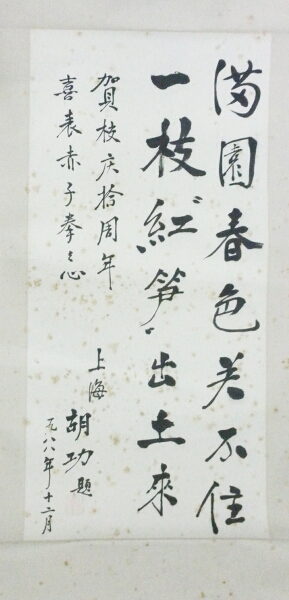 满園春色关不住
一枝紅笋出土來
賀枝庆拾周年
喜表赤子拳々心
上海 胡功題
一九八八年十二月